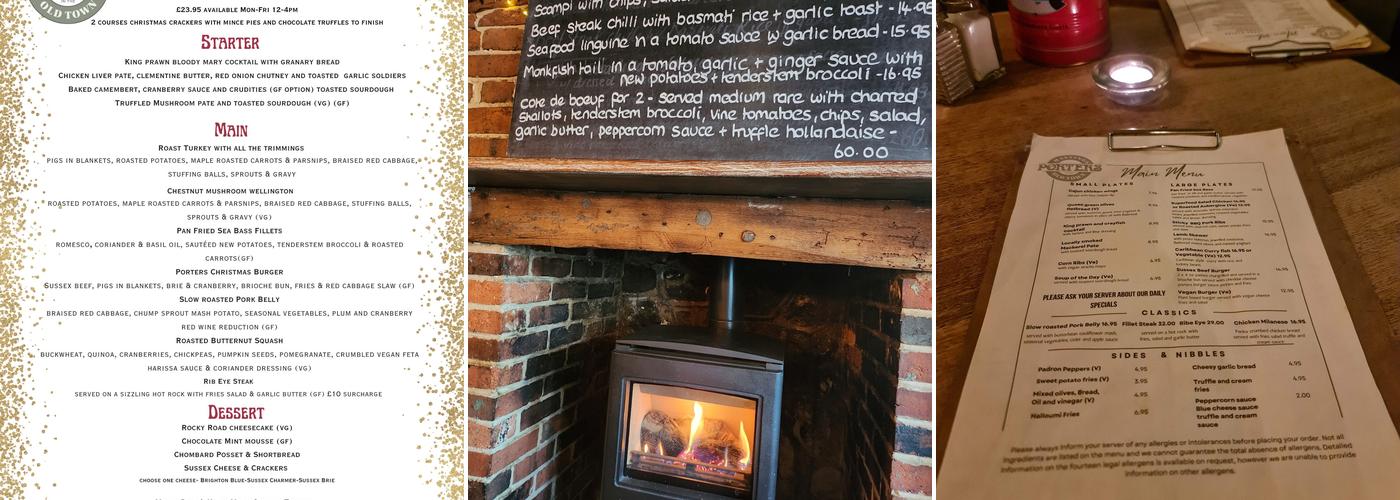 OLD TOWN
£23.95 AVAILABLE MON-FRI 12-4PM
2 COURSES CHRISTMAS CRACKERS WITH MINCE PIES AND CHOCOLATE TRUFFLES TO FINISH
STARTER
KING PRAWN BLOODY MARY COCKTAIL WITH GRANARY BREAD
CHICKEN LIVER PATE, CLEMENTINE BUTTER, RED ONION CHUTNEY AND TOASTED GARLIC SOLDIERS
BAKED CAMEMBERT, CRANBERRY SAUCE AND CRUDITIES (GF OPTION) TOASTED SOURDOUGH
TRUFFLED MUSHROOM PATE AND TOASTED SOURDOUGH (VG) (GF)
MAIN
ROAST TURKEY WITH ALL THE TRIMMINGS
PIGS IN BLANKETS, ROASTED POTATOES, MAPLE ROASTED CARROTS & PARSNIPS, BRAISED RED CABBAGE,
STUFFING BALLS, SPROUTS & GRAVY
CHESTNUT MUSHROOM WELLINGTON
ROASTED POTATOES, MAPLE ROASTED CARROTS & PARSNIPS, BRAISED RED CABBAGE, STUFFING BALLS,
SPROUTS & GRAVY (VG)
PAN FRIED SEA BASS FILLETS
ROMESCO, CORIANDER & BASIL OIL, SAUTÉED NEW POTATOES, TENDERSTEM BROCCOLI & ROASTED
CARROTS(GF)
PORTERS CHRISTMAS BURGER
SUSSEX BEEF, PIGS IN BLANKETS, BRIE & CRANBERRY, BRIOCHE BUN, FRIES & RED CABBAGE SLAW (GF)
SLOW ROASTED PORK BELLY
BRAISED RED CABBAGE, CHUMP SPROUT MASH POTATO, SEASONAL VEGETABLES, PLUM AND CRANBERRY
RED WINE REDUCTION (GF)
ROASTED BUTTERNUT SQUASH
BUCKWHEAT, QUINOA, CRANBERRIES, CHICKPEAS, PUMPKIN SEEDS, POMEGRANATE, CRUMBLED VEGAN FETA
HARISSA SAUCE & CORIANDER DRESSING (VG)
RIB EYE STEAK
SERVED ON A SIZZLING HOT ROCK WITH FRIES SALAD & GARLIC BUTTER (GF) £10 SURCHARGE
DESSERT
ROCKY ROAD CHEESECAKE (VG)
CHOCOLATE MINT MOUSSE (GF)
CHOMBARD POSSET & SHORTBREAD
SUSSEX CHEESE & CRACKERS
CHOOSE ONE CHEESE- BRIGHTON BLUE-SUSSEX CHARMER-SUSSEX BRIE
Scampi with chips,
Beef steak chilli with basmati rice + garlic toast - 14.95
Seafood linguine in a tomato sauce w garlic bread - 15.95
Monkfish tail in a tomato, garlic + ginger sauce with
new potatoes + tenderstem broccoli - 16.95
cote de boeuf for 2 - served medium rare with charred
shallots, tenderstem broccoli, vine tomatoes, chips, salad,
garlic butter, peppercorn sauce + truffle hollandaise -
60.00
PORTERS
Main Menu
SMALL PLATES
Cajun chicken wings
Queen green olives
flatbread (V)
King prawn and crayfish
cocktail
Locally smoked
Mackerel Pate
8.95
Corn Ribs (Ve)
with vegan sriracha mayo
6.95
Soup of the Day (Ve)
served with toasted sourdough bread
6.95
PLEASE ASK YOUR SERVER ABOUT OUR DAILY
SPECIALS
LARGE PLATES
Pan Fried Sea Bass
Superfood Salad Chicken 16.95
or Roasted Aubergine (Ve) 13.95
Sticky BBQ Pork Ribs
Lamb Skewer
16.95
Caribbean Curry fish 16.95 or
Vegetable (Ve) 12.95
Sussex Beef Burger
14.95
Vegan Burger (Ve)
12.95
Plant based burger served with vegan cheese
fries and salad
CLASSICS
Slow roasted Pork Belly 16.95 Fillet Steak 32.00 Ribe Eye 29.00 Chicken Milanese 16.95
served on a hot rock with
fries, salad and garlic butter
SIDES & NIBBLES
Padron Peppers (V) 4.95
Sweet potato fries (V) 3.95
Mixed olives, Bread,
Oil and vinegar (V) 4.95
Halloumi Fries 6.95
Cheesy garlic bread 4.95
Truffle and cream
fries 4.95
Peppercorn sauce 2.00
Blue cheese sauce
truffle and cream
sauce
Please always inform your server of any allergies or intolerances before placing your order. Not all
ingredients are listed on the menu and we cannot guarantee the total absence of allergens. Detailed
information on the fourteen legal allergens is available on request, however we are unable to provide
information on other allergens.